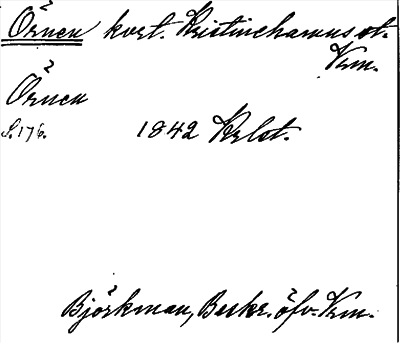 Örnen kvrt. Kristinehamns st.
Vrm.
Örnen
S. 176. 1842 Krlst.
Björkman, Beskr. öfv. Vrm.